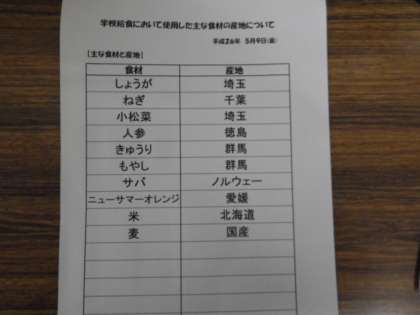 学校給食において使用した主な食材の産地について
平成26年 5月9日(金)
[主な食材と産地]
食材 産地
しょうが 埼玉
ねぎ 千葉
小松菜 埼玉
人参 徳島
きゅうり 群馬
もやし 群馬
サバ ノルウェー
ニューサマーオレンジ 愛媛
米 北海道
麦 国産